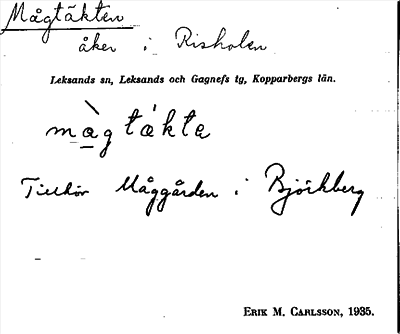 Mågtäkten
åker i Risholen
Leksands sn, Leksands och Gagnefs tg, Kopparbergs län.
màgtákta
Tillhör Måggården i Björkberg
ERIK M. CARLSSON, 1935.